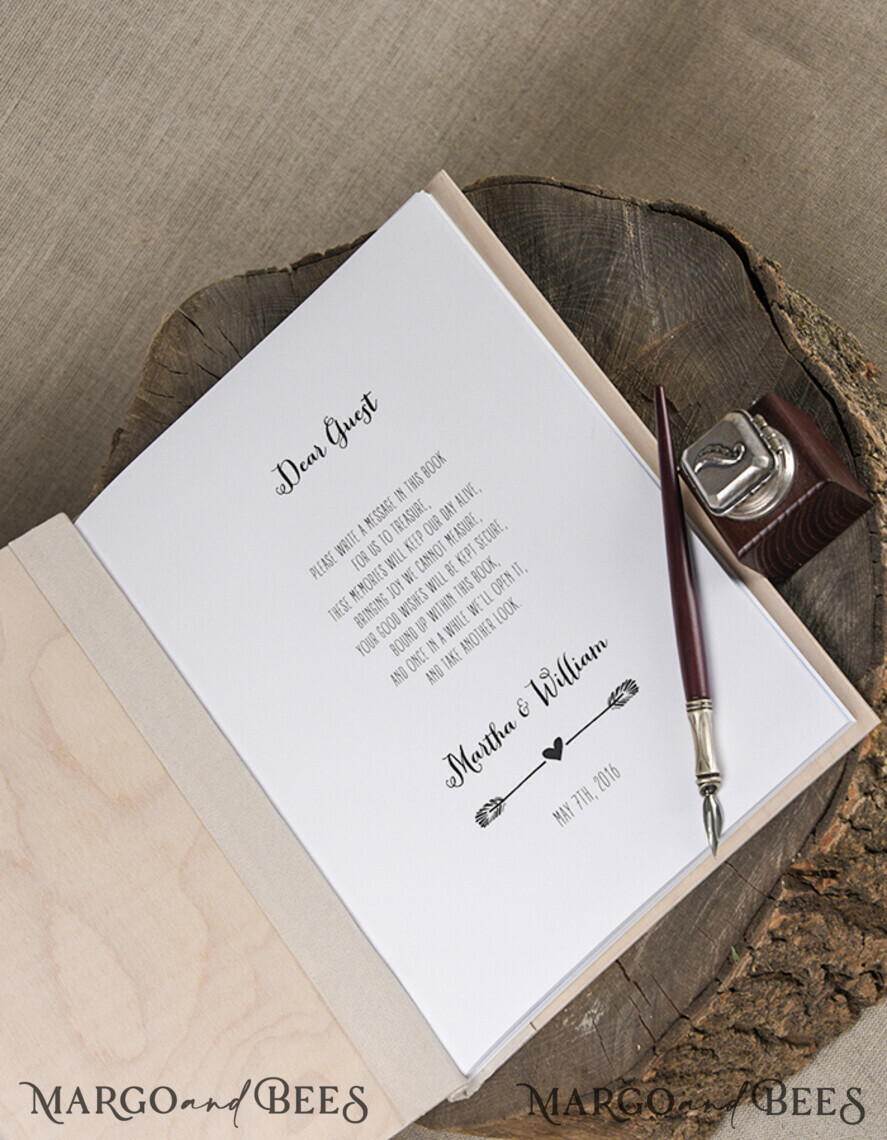 Dear Guest
PLEASE WRITE A MESSAGE IN THIS BOOK
FOR US TO TREASURE,
THESE MEMORIES WILL KEEP OUR DAY ALIVE,
BRINGING JOY WE CANNOT MEASURE,
YOUR GOOD WISHES WILL BE KEPT SECURE,
BOUND UP WITHIN THIS BOOK,
AND ONCE IN A WHILE WE'LL OPEN IT,
AND TAKE ANOTHER LOOK.
Martha & William
MAY 7TH, 2016
MARGO and BEES
MARGO and BEES